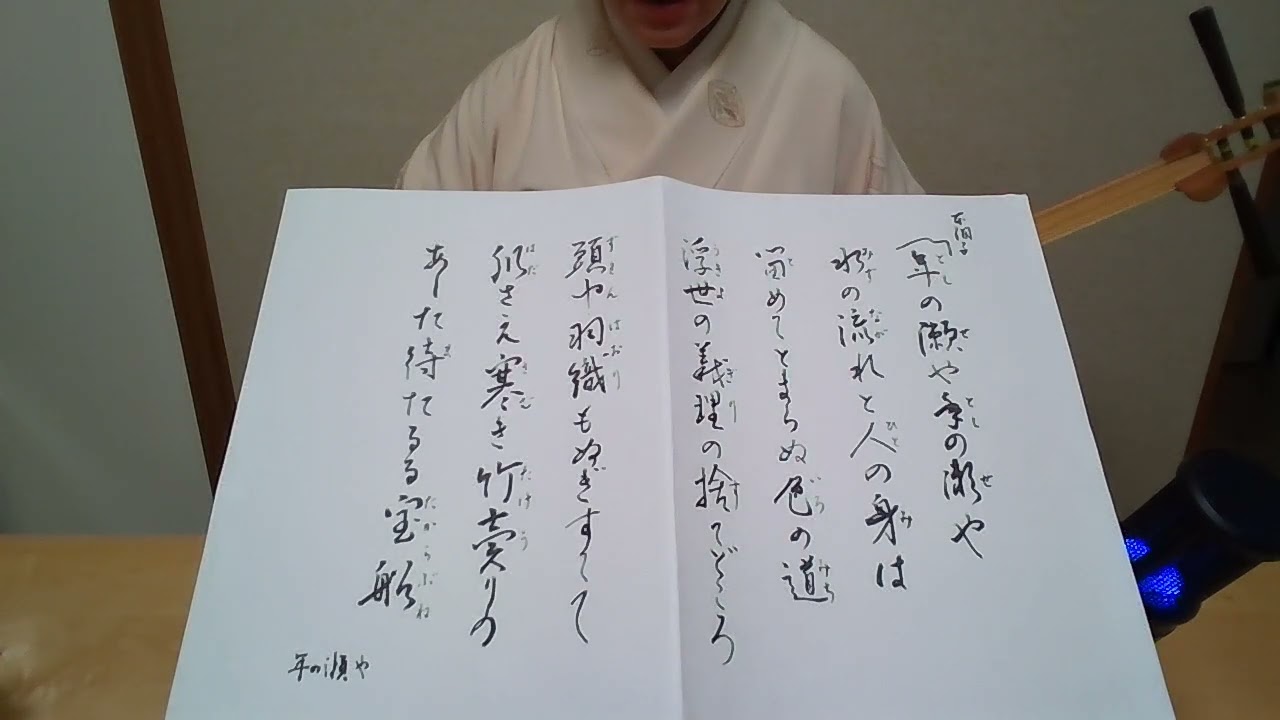 本調子
〽年の瀬や年の瀬や
水の流れと人の身は
留めてとまらぬ色の道
浮世の義理の捨てどころ
頭巾羽織もぬぎすてて
肌さえ寒き竹売りの
あした待たるる宝船
年の瀬や